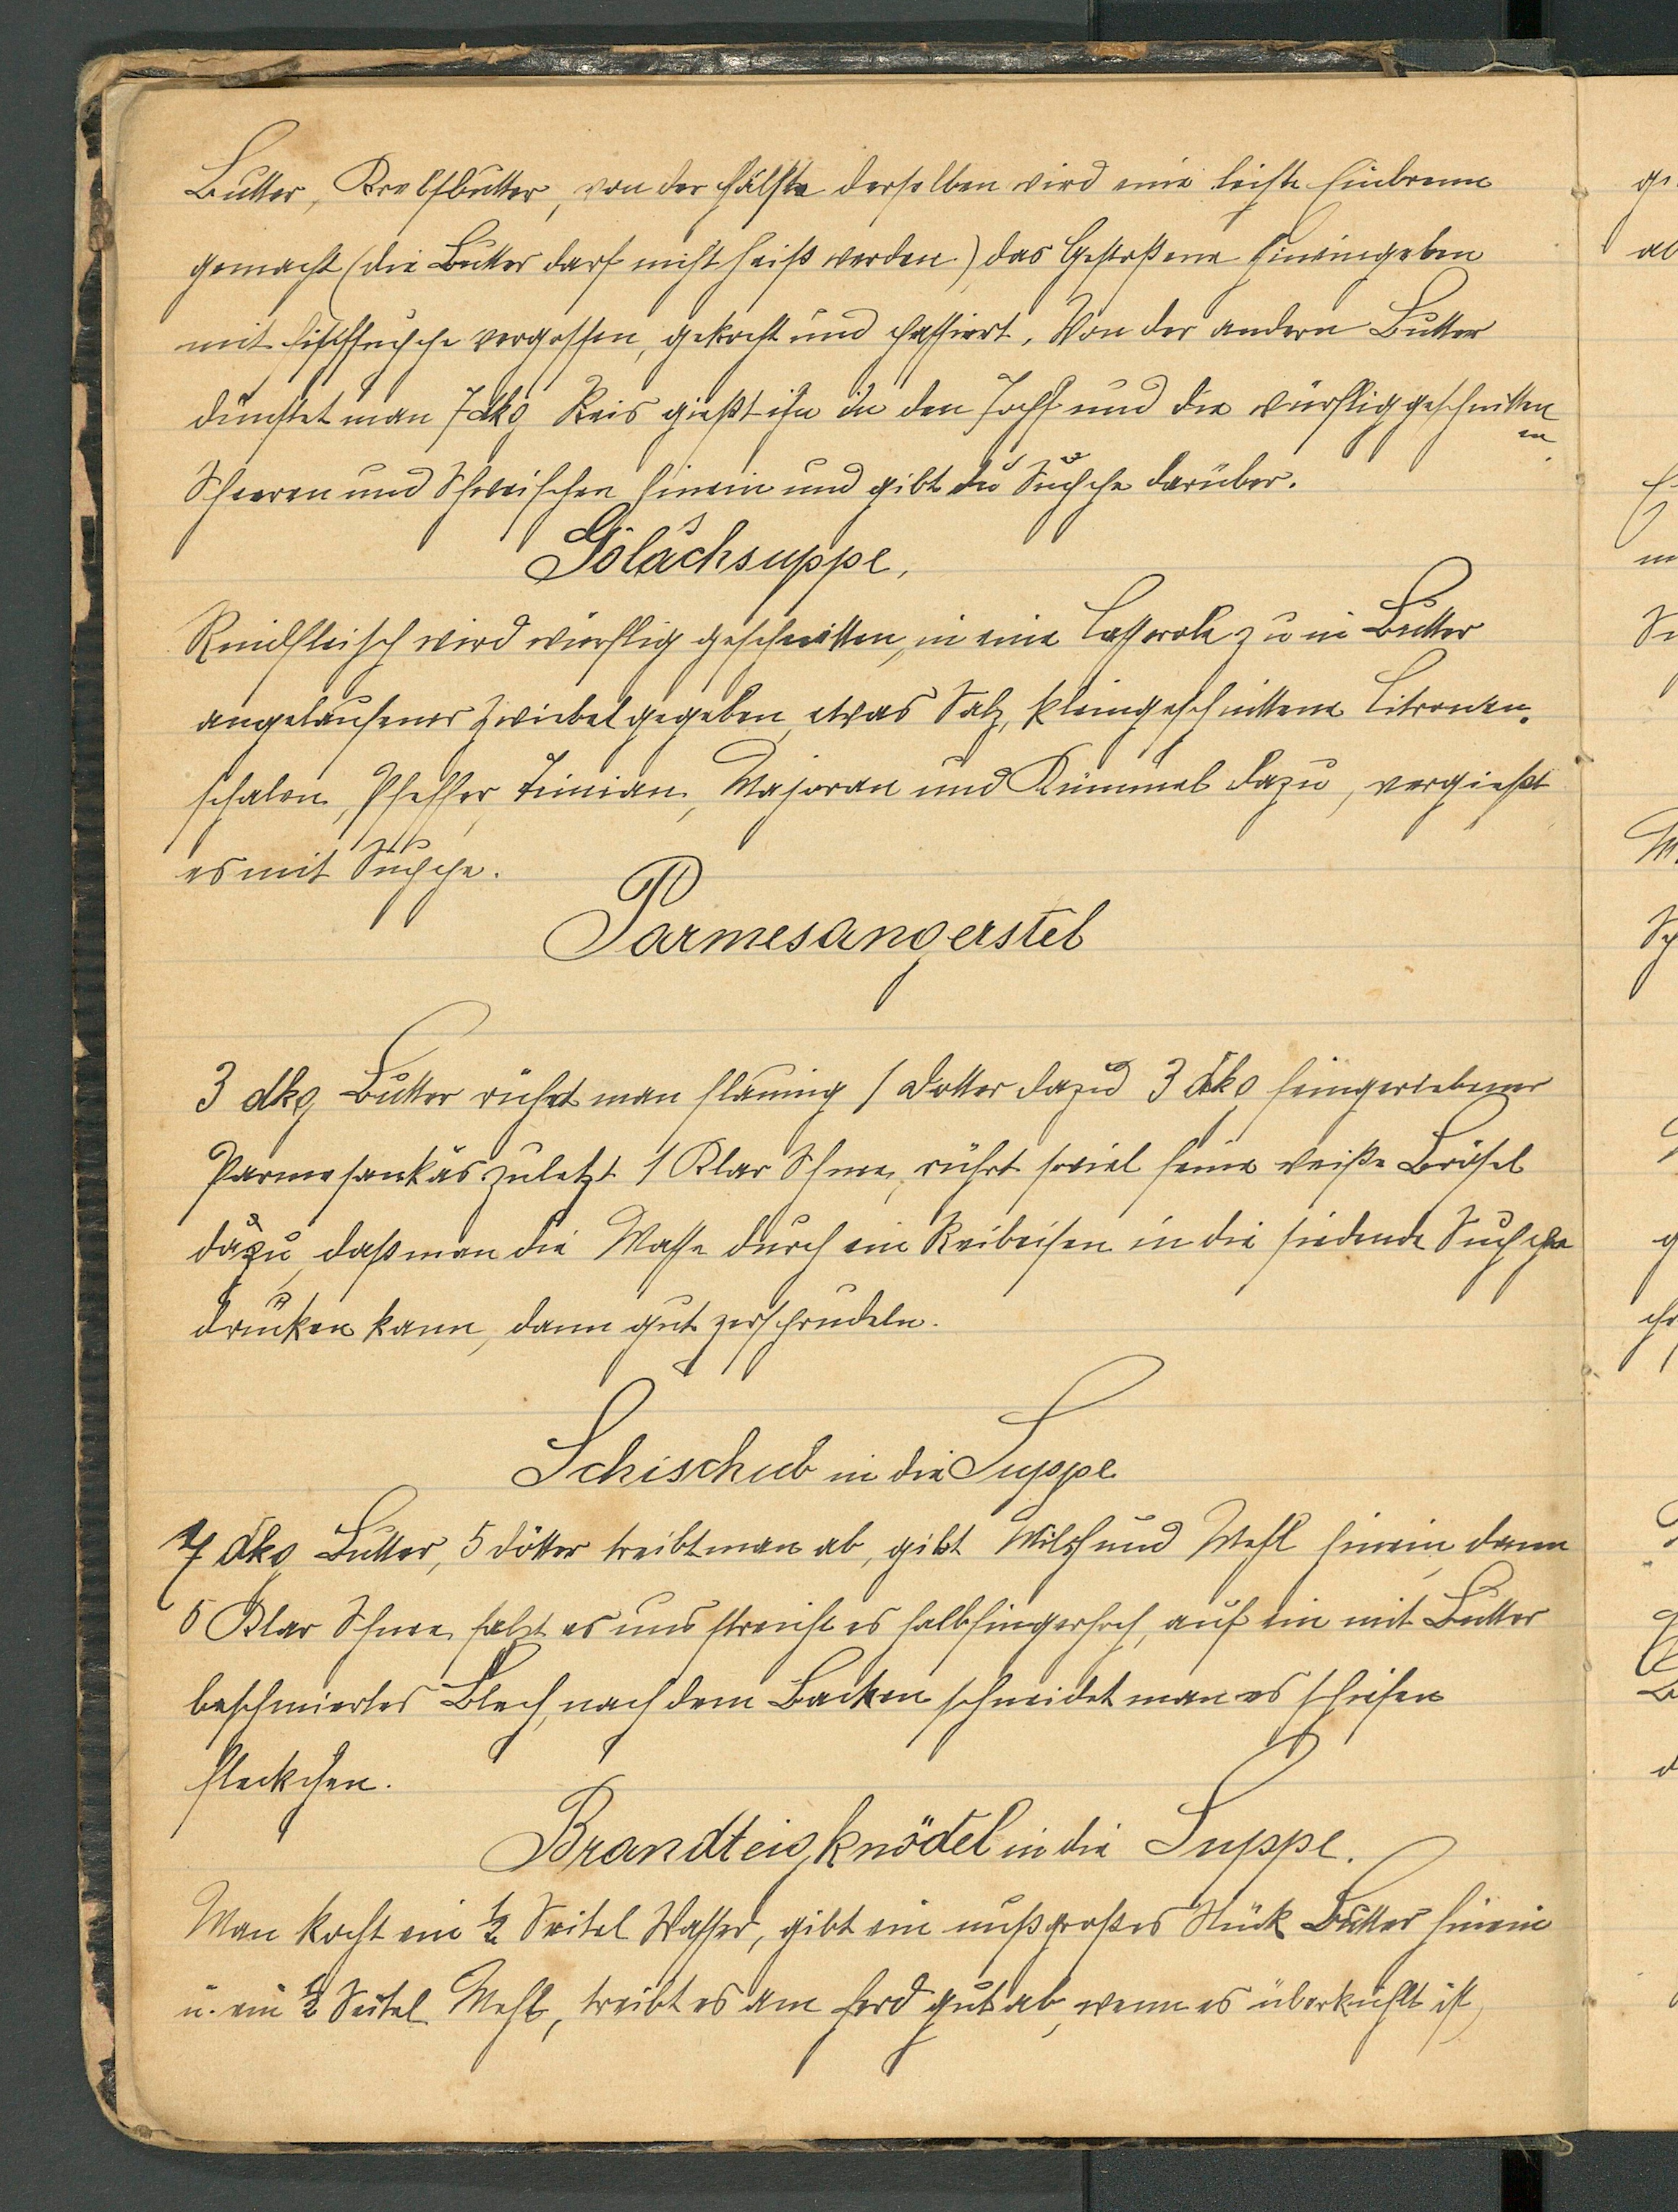 Butter, Krebsbutter, von der Hälfte derselben wird eine leichte Einbrenn
gemacht (die Butter darf nicht heiß werden) das Gestoßene hineingeben
mit Fischsuppe vergossen, gekocht und passiert. Von der andern Butter
dünstet man 7 dkg Reis gießt ihn in den Topf und die würflig geschnitten
en
Scheeren und Schweifchen hinein und gibt die Suppe darüber.
Golàchsuppe.
Rindfleisch wird würflig geschnitten, in eine Casserole zu in Butter
angelaufener Zwiebel gegeben, etwas Salz, kleingeschnittene Citronen-
schalen, Pfeffer, Timian, Majoran und Kümmel dazu, vergießt
es mit Suppe.
Parmesangerstel
3 dkg Butter rührt man flaumig 1 Dotter dazu 3 dkg feingeriebener
Parmesankäs zuletzt 1 Klar Schnee, rührt soviel feine weiße Brösel
dazu, daß man die Masse durch ein Reibeisen in die siedende Suppe
drücken kann, dann gut versprudeln.
Schischub in die Suppe
7 dkg Butter, 5 Dötter treibt man ab, gibt Milch und Mehl hinein, dann
5 Klar Schnee salzt es und streicht es halbfingerhoch, auf ein mit Butter
beschmiertes Blech, nach dem Backen schneidet man es schiefen
Fleckchen.
Brandteigknödel in die Suppe.
Man kocht ein ½ Seitel Wasser, gibt ein nußgroßes Stück Butter hinein
u. ein ½ Seitel Mehl, treibt es am Herd gut ab, wenn es überkühlt ist,